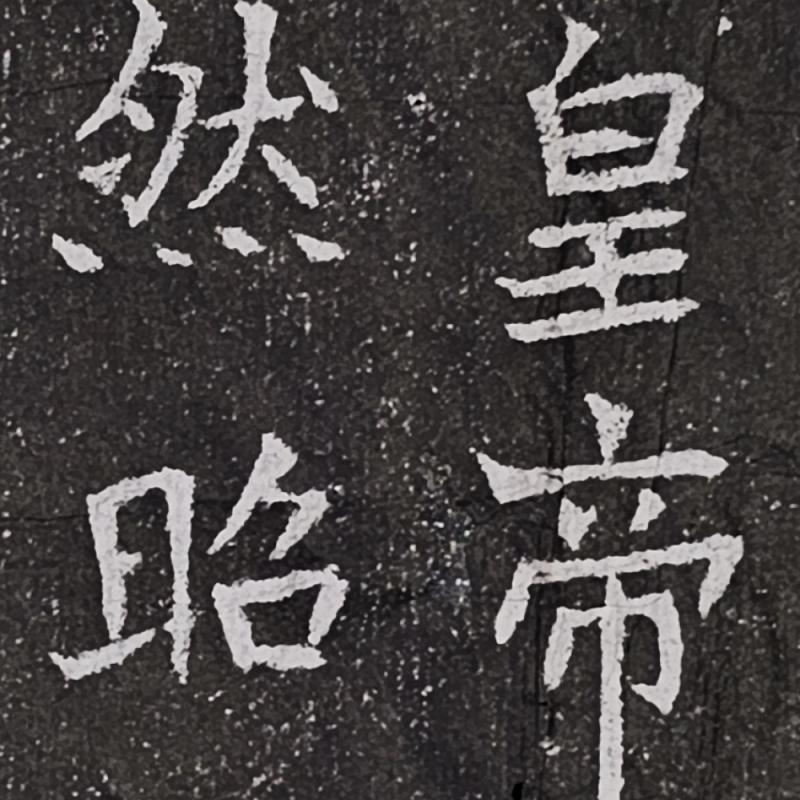 皇帝
然昭